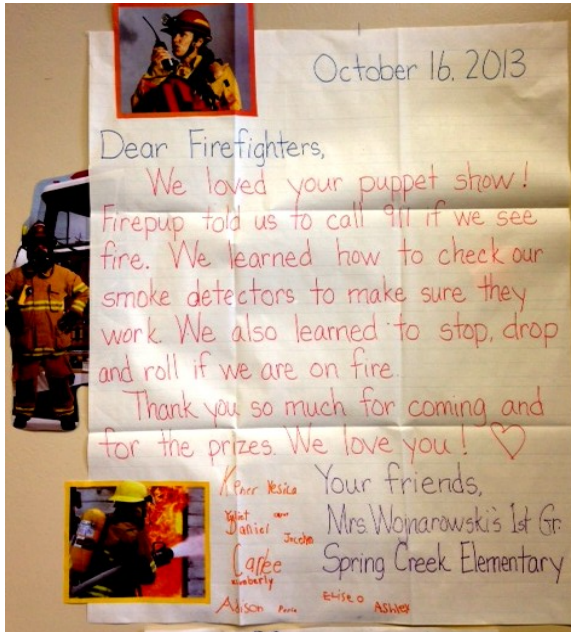 October 16, 2013
Dear Firefighters,
We loved your puppet show!
Firepup told us to call 911 if we see
fire. We learned how to check our
smoke detectors to make sure they
work. We also learned to stop, drop
and roll if we are on fire.
Thank you so much for coming and
for the prizes. We love you!
Your friends,
Yesica
Daniel
Jocelyn
Mrs. Wojnarowski's 1st Gr.
Spring Creek Elementary
Kimberly
Adison
Eliseo
Ashley